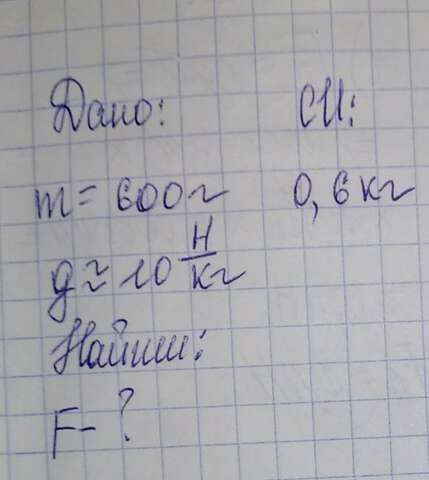 Дано: СИ:
m = 600 г 0,6 кг
g ≈ 10 Н/кг
Найти:
F - ?